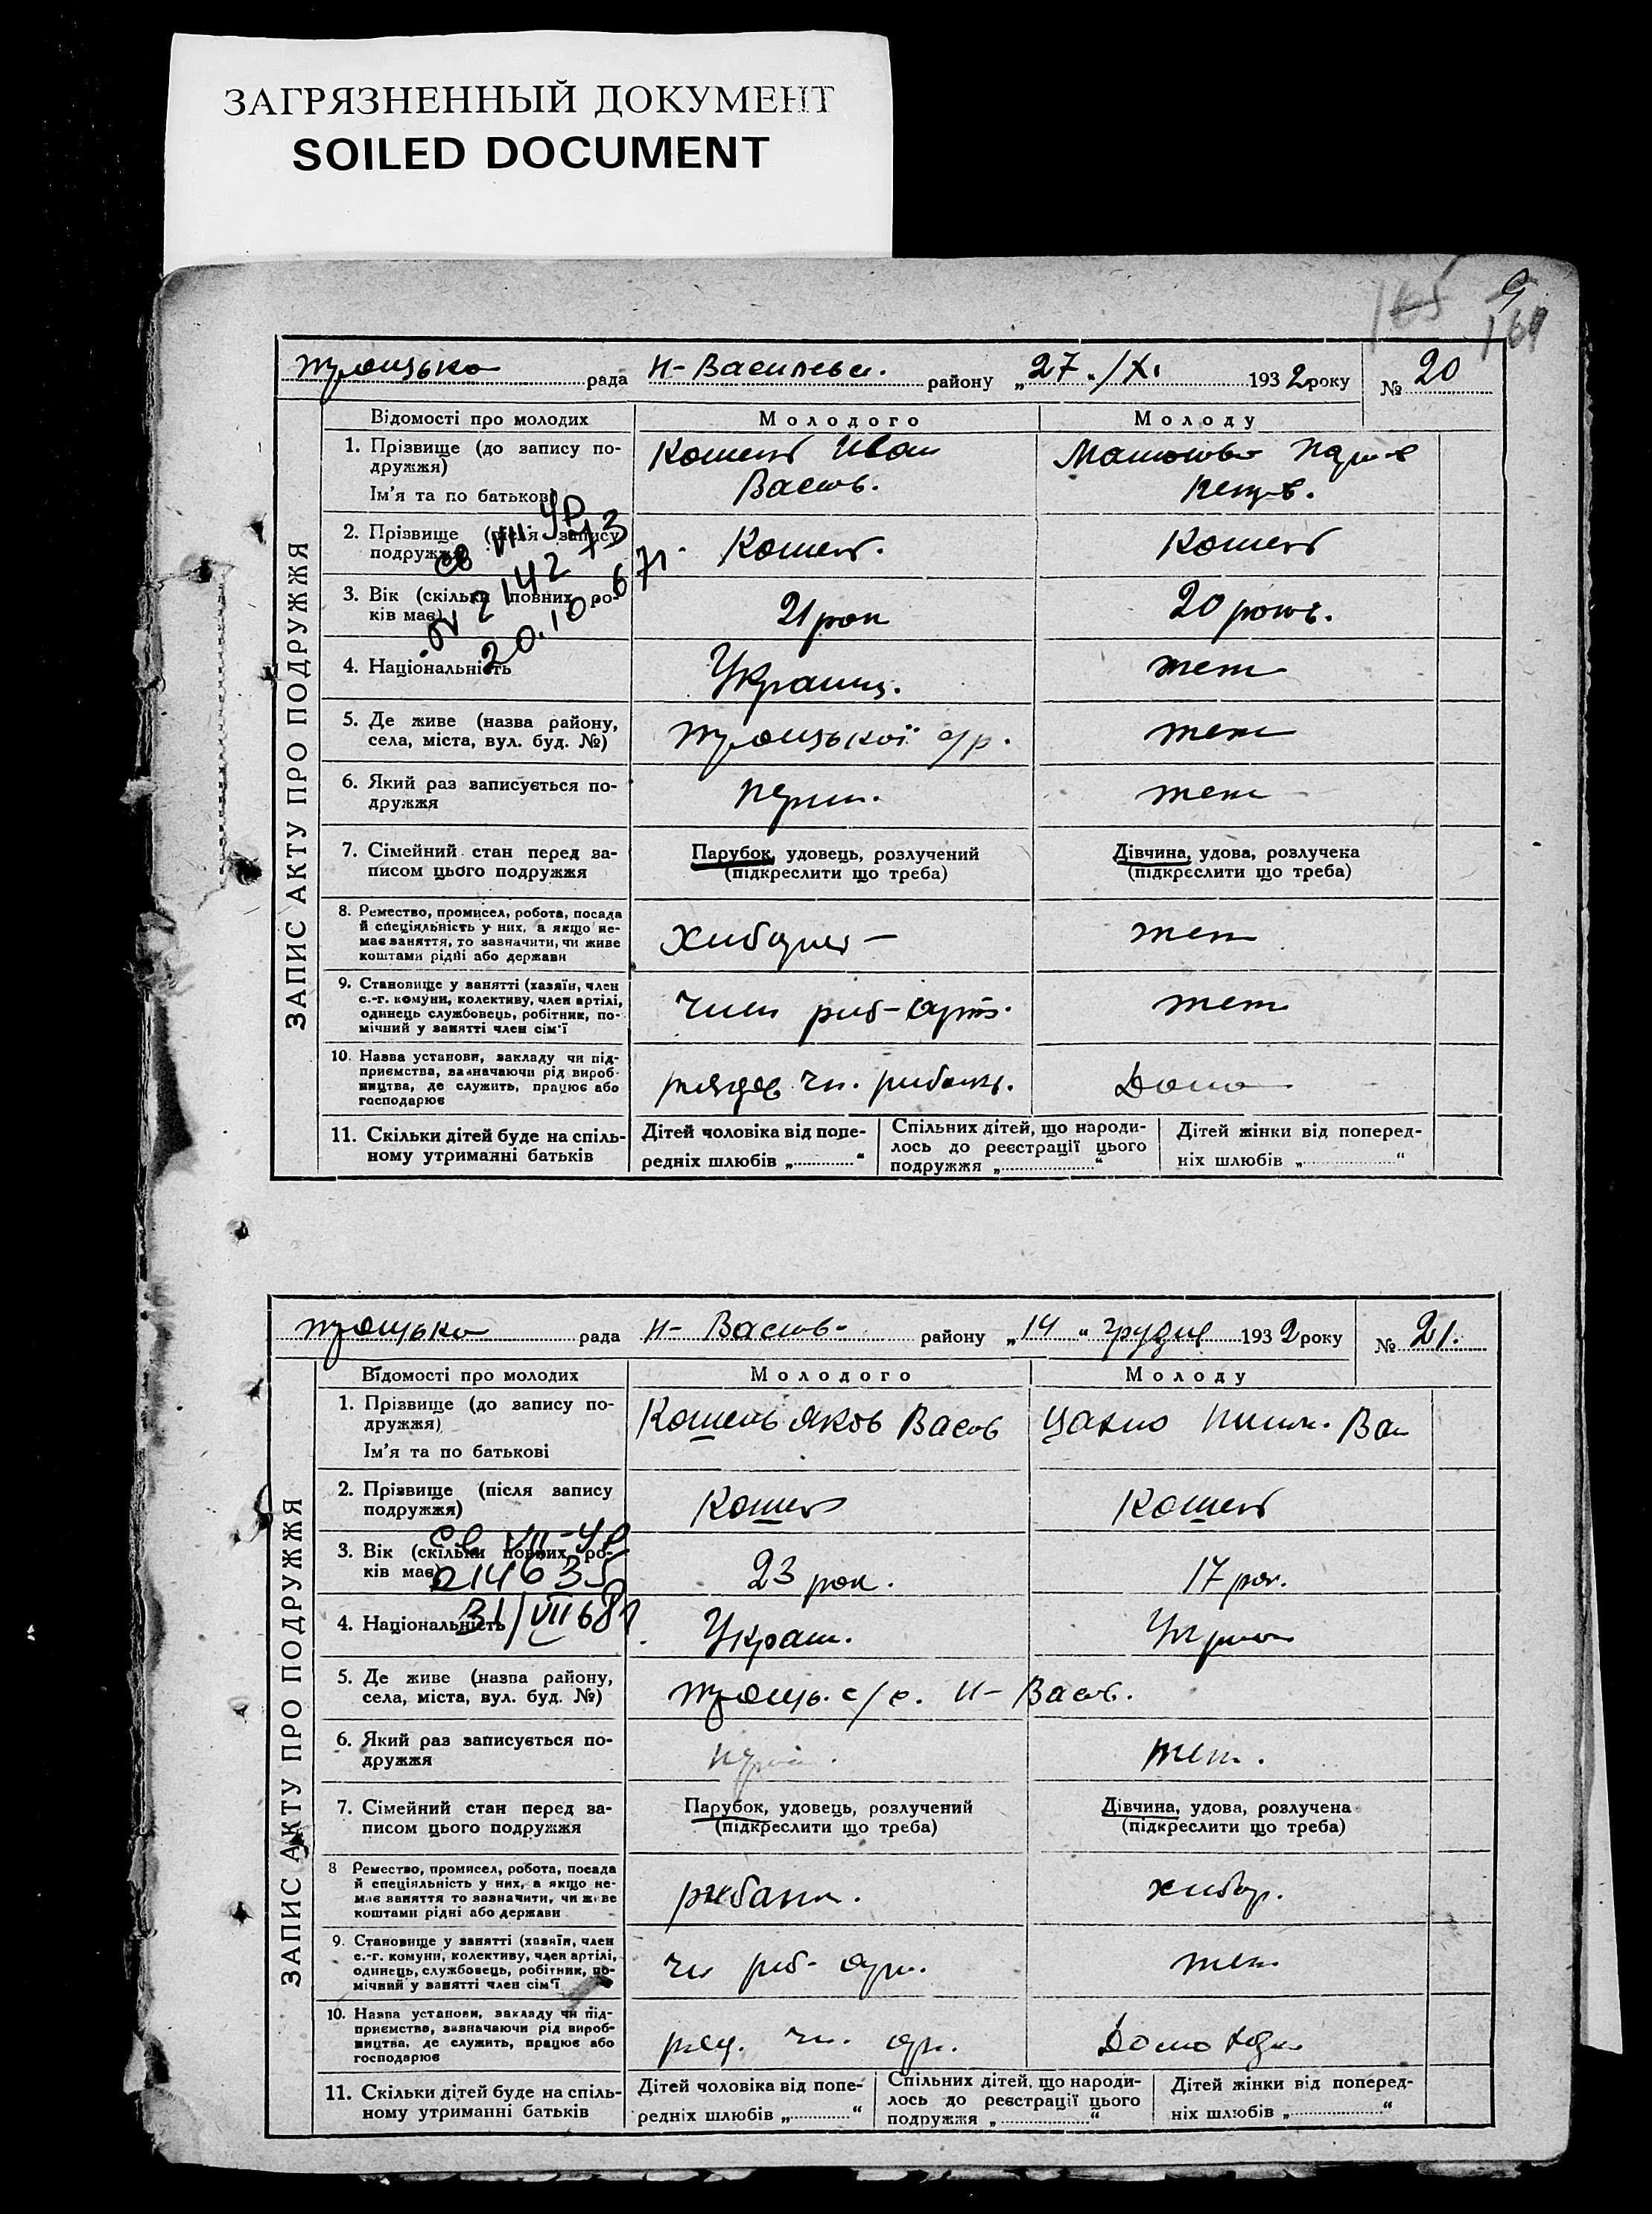 ЗАГРЯЗНЕННЫЙ ДОКУМЕНТ
SOILED DOCUMENT
165
9
169
Троицька рада Н-Василевсь. району „27./XI 1932 року № 20
ЗАПИС АКТУ ПРО ПОДРУЖЖЯ
Відомості про молодих Молодого Молоду
1. Прізвище (до запису по-
дружжя)
Ім'я та по батькові
Кошень Иван
Васил.
2. Прізвище (після запису
подружжя)
Кошень. Кошень
св VII УР
№ 2142 73
20.10.67
3. Вік (скільки повних ро-
ків має)
21 рок 20 років.
4. Національність
Украинц. теж
5. Де живе (назва району,
села, міста, вул. буд. №)
Троицької с/р. теж
6. Який раз записується по-
дружжя
перш. теж
7. Сімейний стан перед за-
писом цього подружжя
Парубок, удовець, розлучений
(підкреслити що треба)
Дівчина, удова, розлучена
(підкреслити що треба)
8. Ремество, промисел, робота, посада
й спеціяльність у них, а якщо не-
має заняття, то зазначити, чи живе
коштами рідні або держави
Хлібороб – теж
9. Становище у занятті (хазяїн, член
с.-г. комуни, колективу, член артілі,
одинець службовець, робітник, по-
мічний у занятті член сім'ї
член риб-арт. теж
10. Назва установи, закладу чи під-
приємства, зазначаючи рід вироб-
ництва, де служить, працює або
господарює
чл. Дома
11. Скільки дітей буде на спіль-
ному утриманні батьків
Дітей чоловіка від попе-
редніх шлюбів „ “
Спільних дітей, що народи-
лось до реєстрації цього
подружжя „ “
Дітей жінки від поперед-
ніх шлюбів „ “
Троицька рада Н- Васил. району „14“ грудня 1932 року № 21.
ЗАПИС АКТУ ПРО ПОДРУЖЖЯ
Відомості про молодих Молодого Молоду
1. Прізвище (до запису по-
дружжя)
Ім'я та по батькові
Кошень Яков Васил Вас
2. Прізвище (після запису
подружжя)
Кошень Кошень
св VII-УР
214635
31/VII 68
3. Вік (скільки повних ро-
ків має)
23 рок. 17 рок.
4. Національність
Украин. Украин
5. Де живе (назва району,
села, міста, вул. буд. №)
Троиць. с/р. Н- Васил.
6. Який раз записується по-
дружжя
перш. теж.
7. Сімейний стан перед за-
писом цього подружжя
Парубок, удовець, розлучений
(підкреслити що треба)
Дівчина, удова, розлучена
(підкреслити що треба)
8 Ремество, промисел, робота, посада
й спеціяльність у них, а якщо не-
має заняття то зазначити, чи живе
коштами рідні або держави
рибалк. хлібор.
9. Становище у занятті (хазяїн, член
с.-г. комуни, колективу, член артілі,
одинець, службовець, робітник, по-
мічний у занятті член сім'ї
чл риб- арт. теж
10. Назва установи, закладу чи під-
приємства, зазначаючи рід вироб-
ництва, де служить, працює або
господарює
ряд. чл. арт.
11. Скільки дітей буде на спіль-
ному утриманні батьків
Дітей чоловіка від попе-
редніх шлюбів „ “
Спільних дітей, що народи-
лось до реєстрації цього
подружжя „ “
Дітей жінки від поперед-
ніх шлюбів „ “